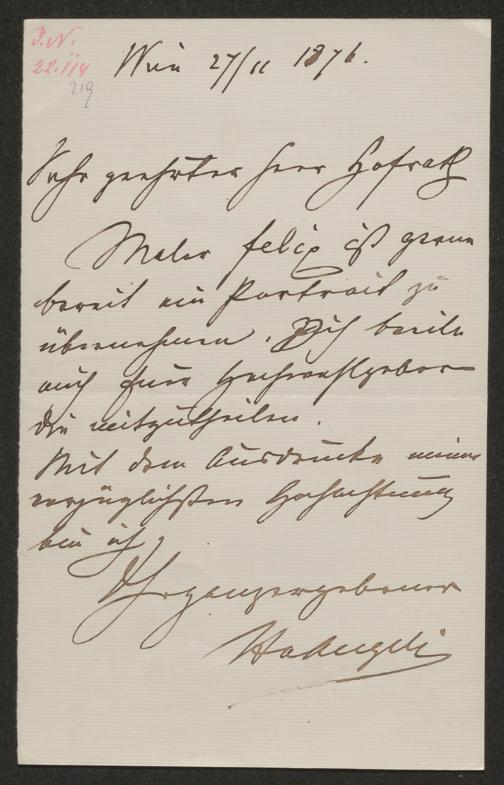 I.N.
22.114
219
Wien 27/11 1876.
Sehr geehrter Herr Hofrath
Maler Felix ist gerne
bereit ein Portrait zu
übernehmen. Ich beeile
mich Euer Hochwohlgeboren
die mitzutheilen.
Mit dem Ausdrucke meiner
vorzüglichsten Hochachtung
bin ich,
Ihr ganz ergebener
HvAngeli